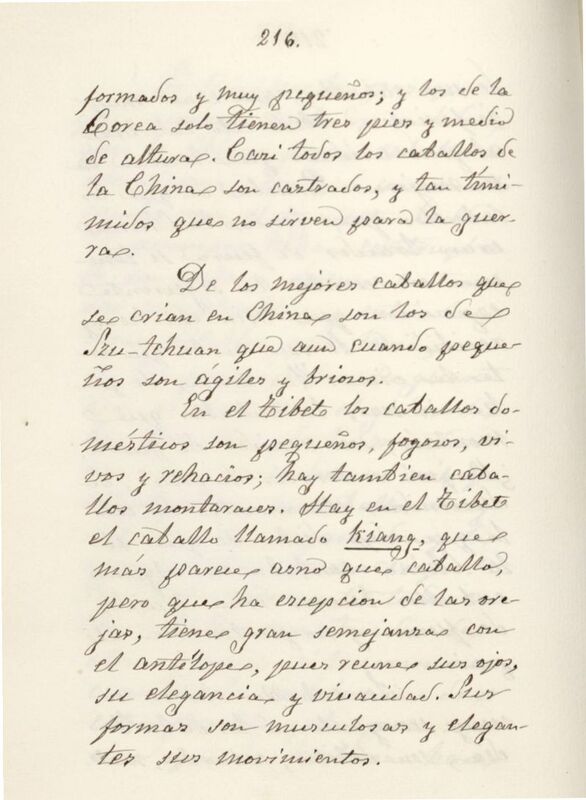 216.
formados y muy pequeños; y los de la
Corea solo tienen tres pies y medio
de altura. Casi todos los caballos de
la China son castrados, y tan tími-
midos que no sirven para la guer-
ra.
De los mejores caballos que
se crian en China son los de
Szu-tchuan que aun cuando peque-
ños son ágiles y briosos.
En el Tibet los caballos do-
mésticos son pequeños, fogosos, vi-
vos y rehacios; hay tambien caba-
llos montaraces. Hay en el Tibet
el caballo llamado Kiang, que
más parece asno que caballo,
pero que ha escepcion de las ore-
jas, tiene gran semejanza con
el antélope, pues reune sus ojos,
su elegancia y vivacidad. Sus
formas son musculosas y elegan-
tes sus movimientos.